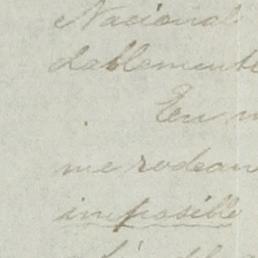 Nacional
dablemente
En
me rodean
imposible